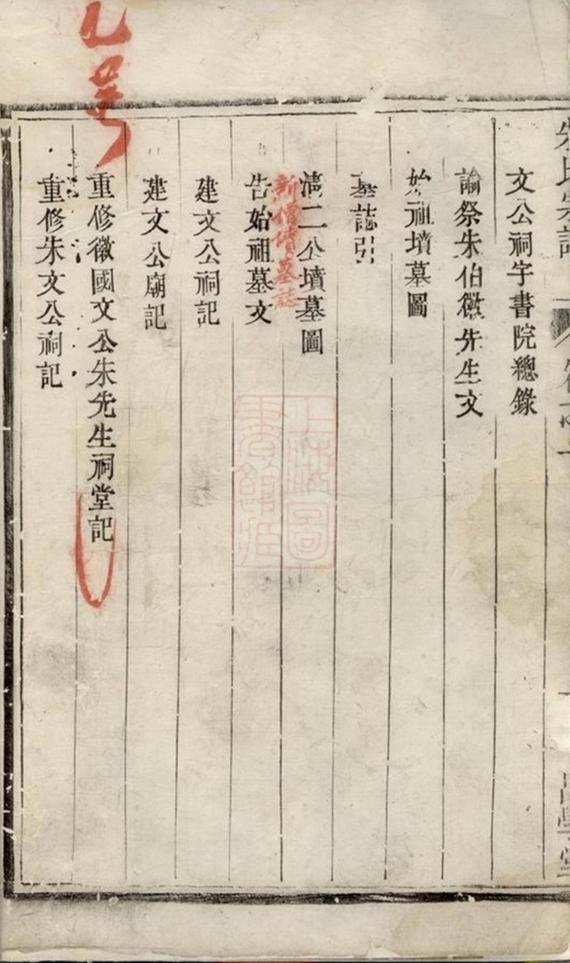 朱氏宗譜
文公祠宇書院總錄
諭祭朱伯徵先生文
始祖墳墓圖
墓誌引
清二公墳墓圖
新增墳墓誌
告始祖墓文
建文公祠記
建文公廟記
重修徽國文公朱先生祠堂記
重修朱文公祠記
上海圖書館藏